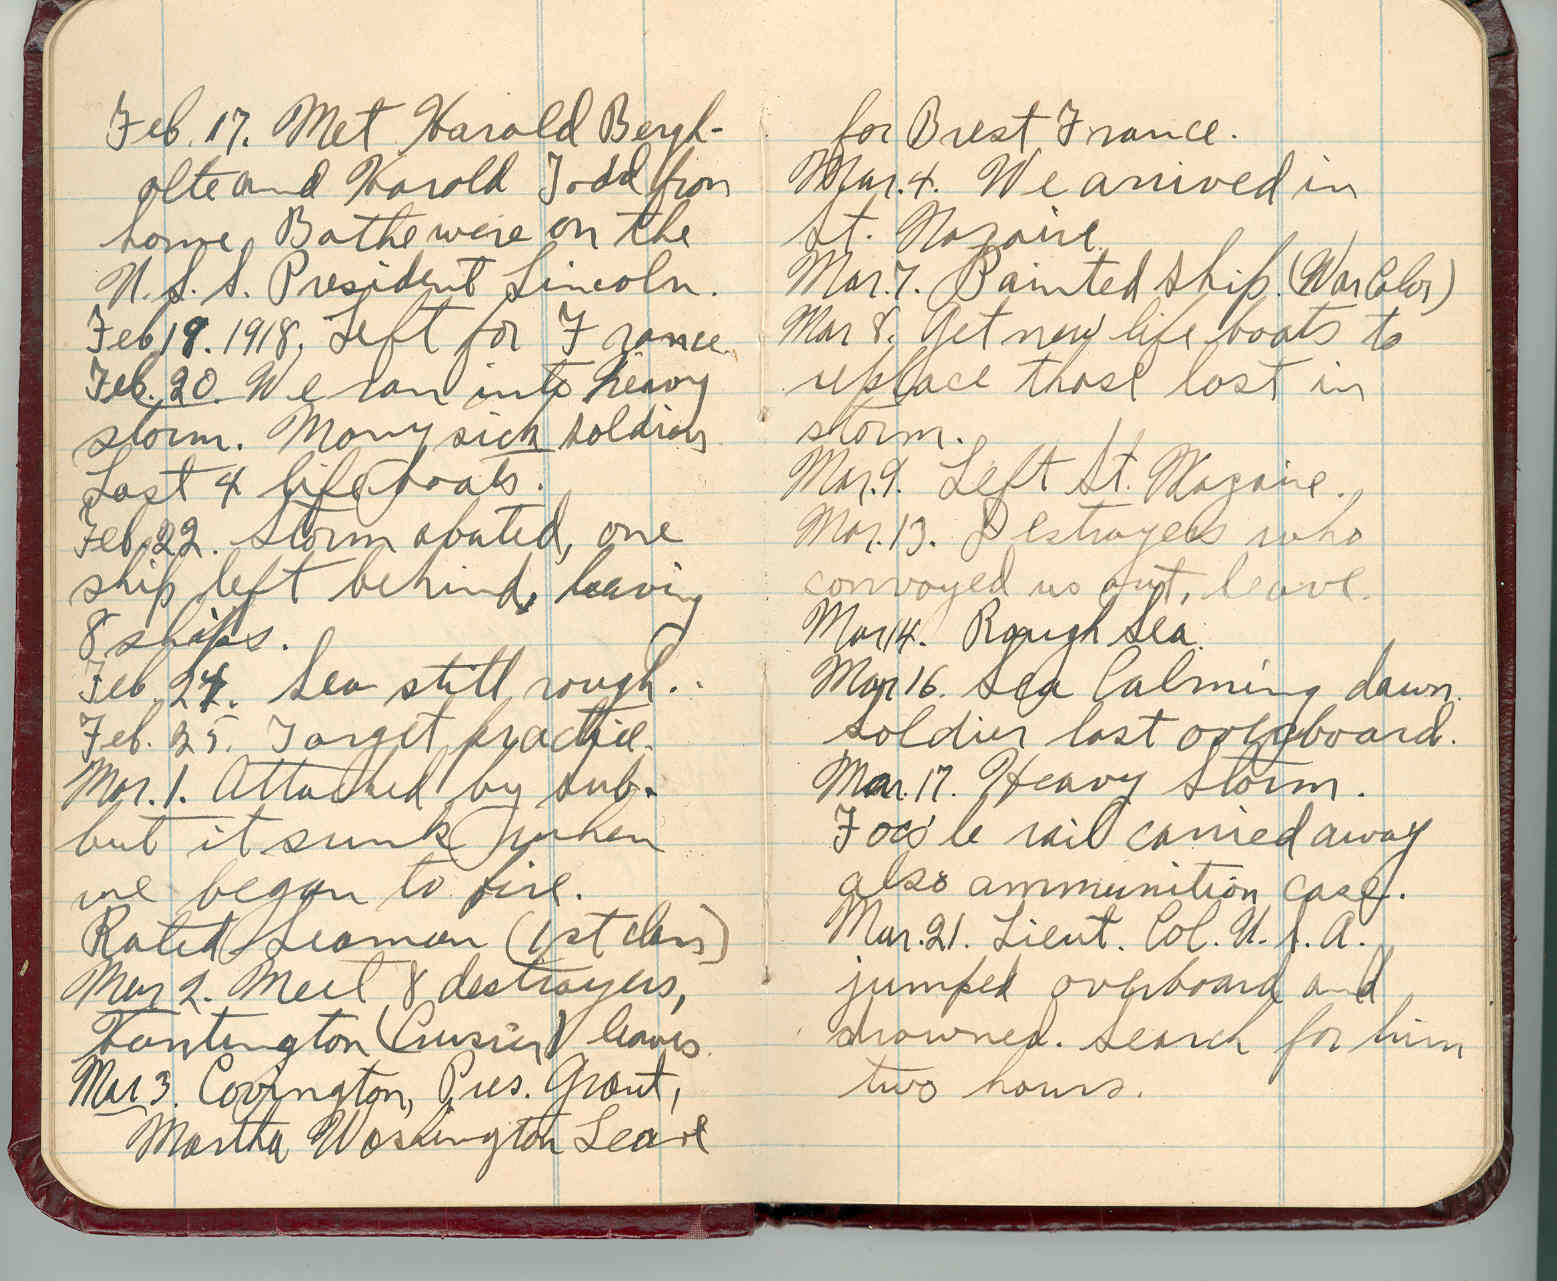 Feb. 17. Met Harold Bergh-
olte and Harold Todd from
home, Bothe were on the
U.S.S. President Lincoln.
Feb 19. 1918, Left for France.
Feb. 20. We ran into heavy
storm. Many sick soldiers
Lost 4 life boats.
Feb. 22. Storm abated, one
ship left behind, leaving
8 ships.
Feb. 24. Sea still rough.
Feb. 25. Target practice.
Mar. 1. Attacked by sub.
but it sunk when
we began to fire.
Rated Seaman (1st class)
Mar 2. Meet 8 destroyers,
Huntington (Crusier) leaves.
Mar 3. Covington, Pres. Grant,
Martha Washington Leave
for Brest France.
Mar. 4. We arrived in
St. Nazaire.
Mar. 7. Painted ship. (War Color)
Mar 8. Get new life boats to
replace those lost in
storm.
Mar. 9. Left St. Nazaire.
Mar. 13. Destroyers who
convoyed us out, leave.
Mar 14. Rough Sea.
Mar 16. Sea Calming down.
soldier lost overboard.
Mar. 17. Heavy Storm.
Focs'le rail carried away
also ammunition case.
Mar. 21. Lieut. Col. U.S.A.
jumped overboard and
drowned. Search for him
two hours.